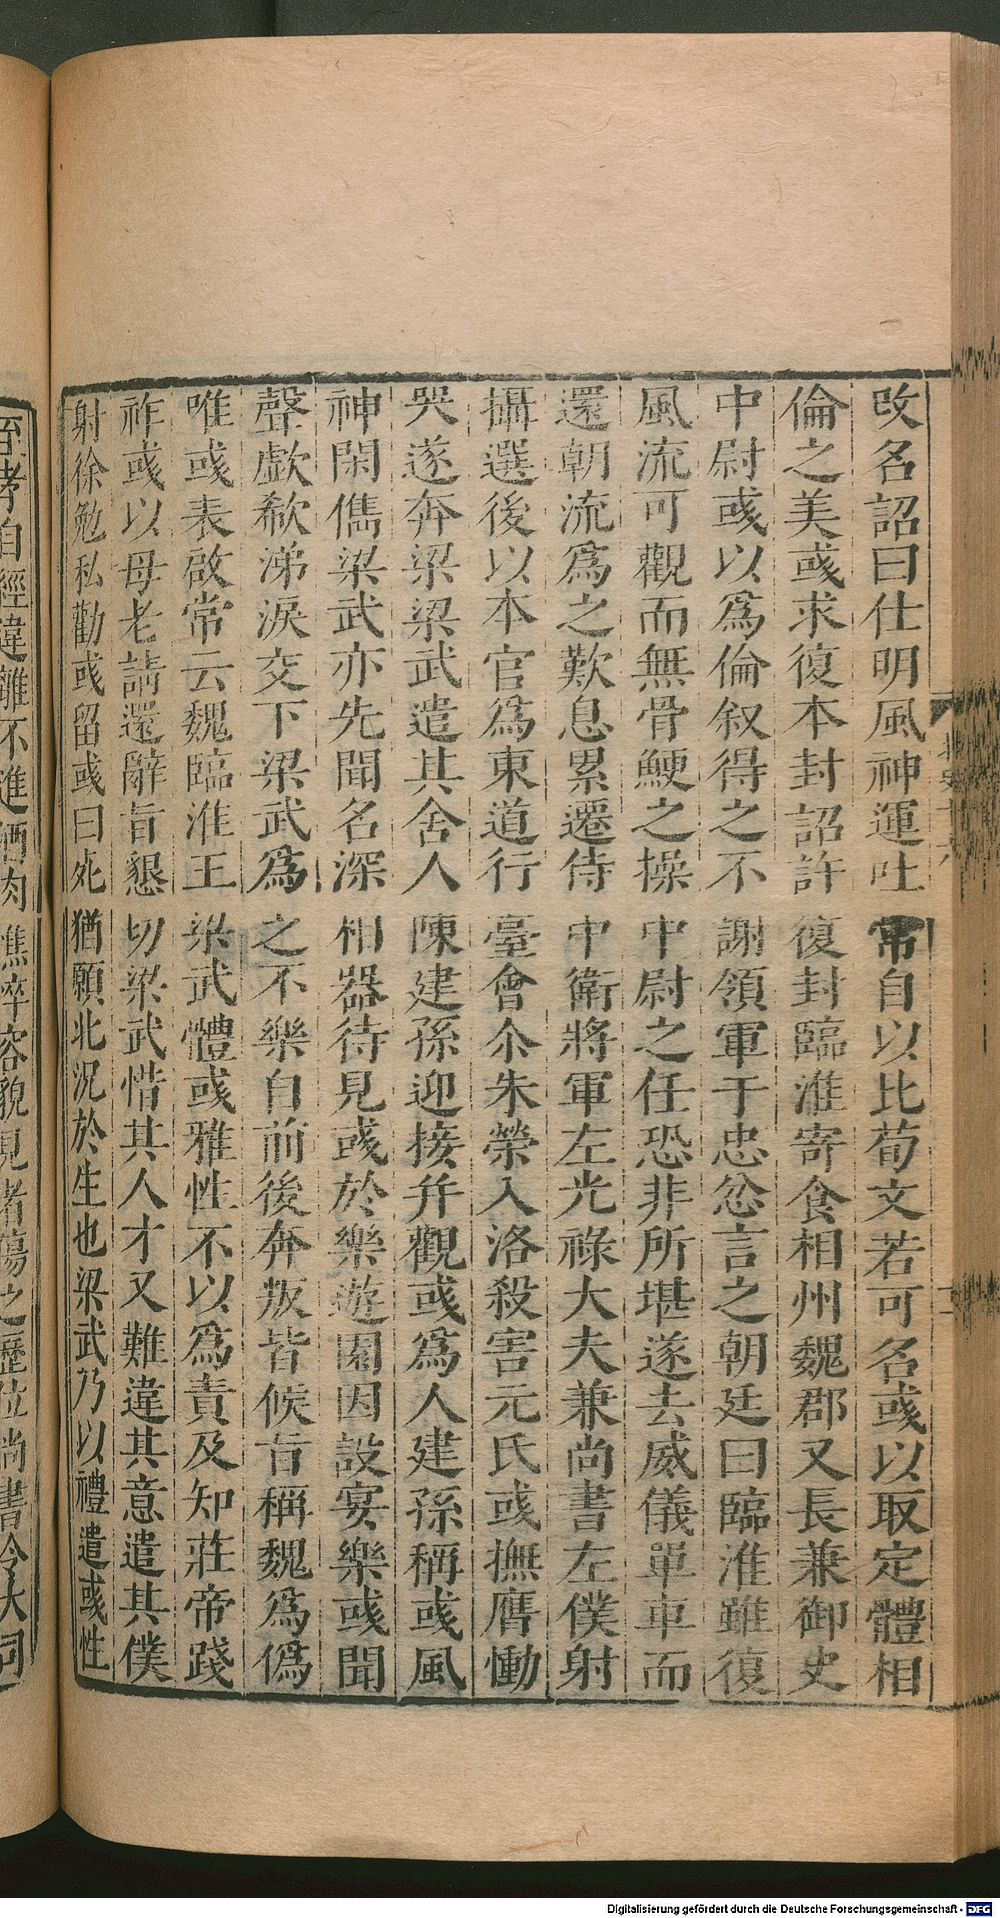 改名詔曰仕明風神運吐常自以比荀文若可名彧以取定體相
倫之美彧求復本封詔許復封臨淮寄食相州魏郡又長兼御史
中尉彧以爲倫叙得之不謝領軍于忠忿言之朝廷曰臨淮雖復
風流可觀而無骨鯁之操中尉之任恐非所堪遂去威儀單車而
還朝流爲之歎息累遷侍中衛將軍左光祿大夫兼尚書左僕射
攝選後以本官爲東道行臺會尒朱榮入洛殺害元氏彧撫膺慟
哭遂奔梁梁武遣其舍人陳建孫迎接并觀彧爲人建孫稱彧風
神閑儁梁武亦先聞名深相器待見彧於樂遊園因設宴樂彧聞
聲歔欷涕淚交下梁武爲之不樂自前後奔叛皆候旨稱魏爲僞
唯彧表啟常云魏臨淮王梁武體彧雅性不以爲責及知莊帝踐
祚彧以母老請還辭旨懇切梁武惜其人才又難違其意遣其僕
射徐勉私勸彧留彧曰死猶願北況於生也梁武乃以禮遣彧性
至孝自經違離不進酒肉憔悴容貌見者傷之歷位尚書令大司
北史十六
Digitalisierung gefördert durch die Deutsche Forschungsgemeinschaft - DFG